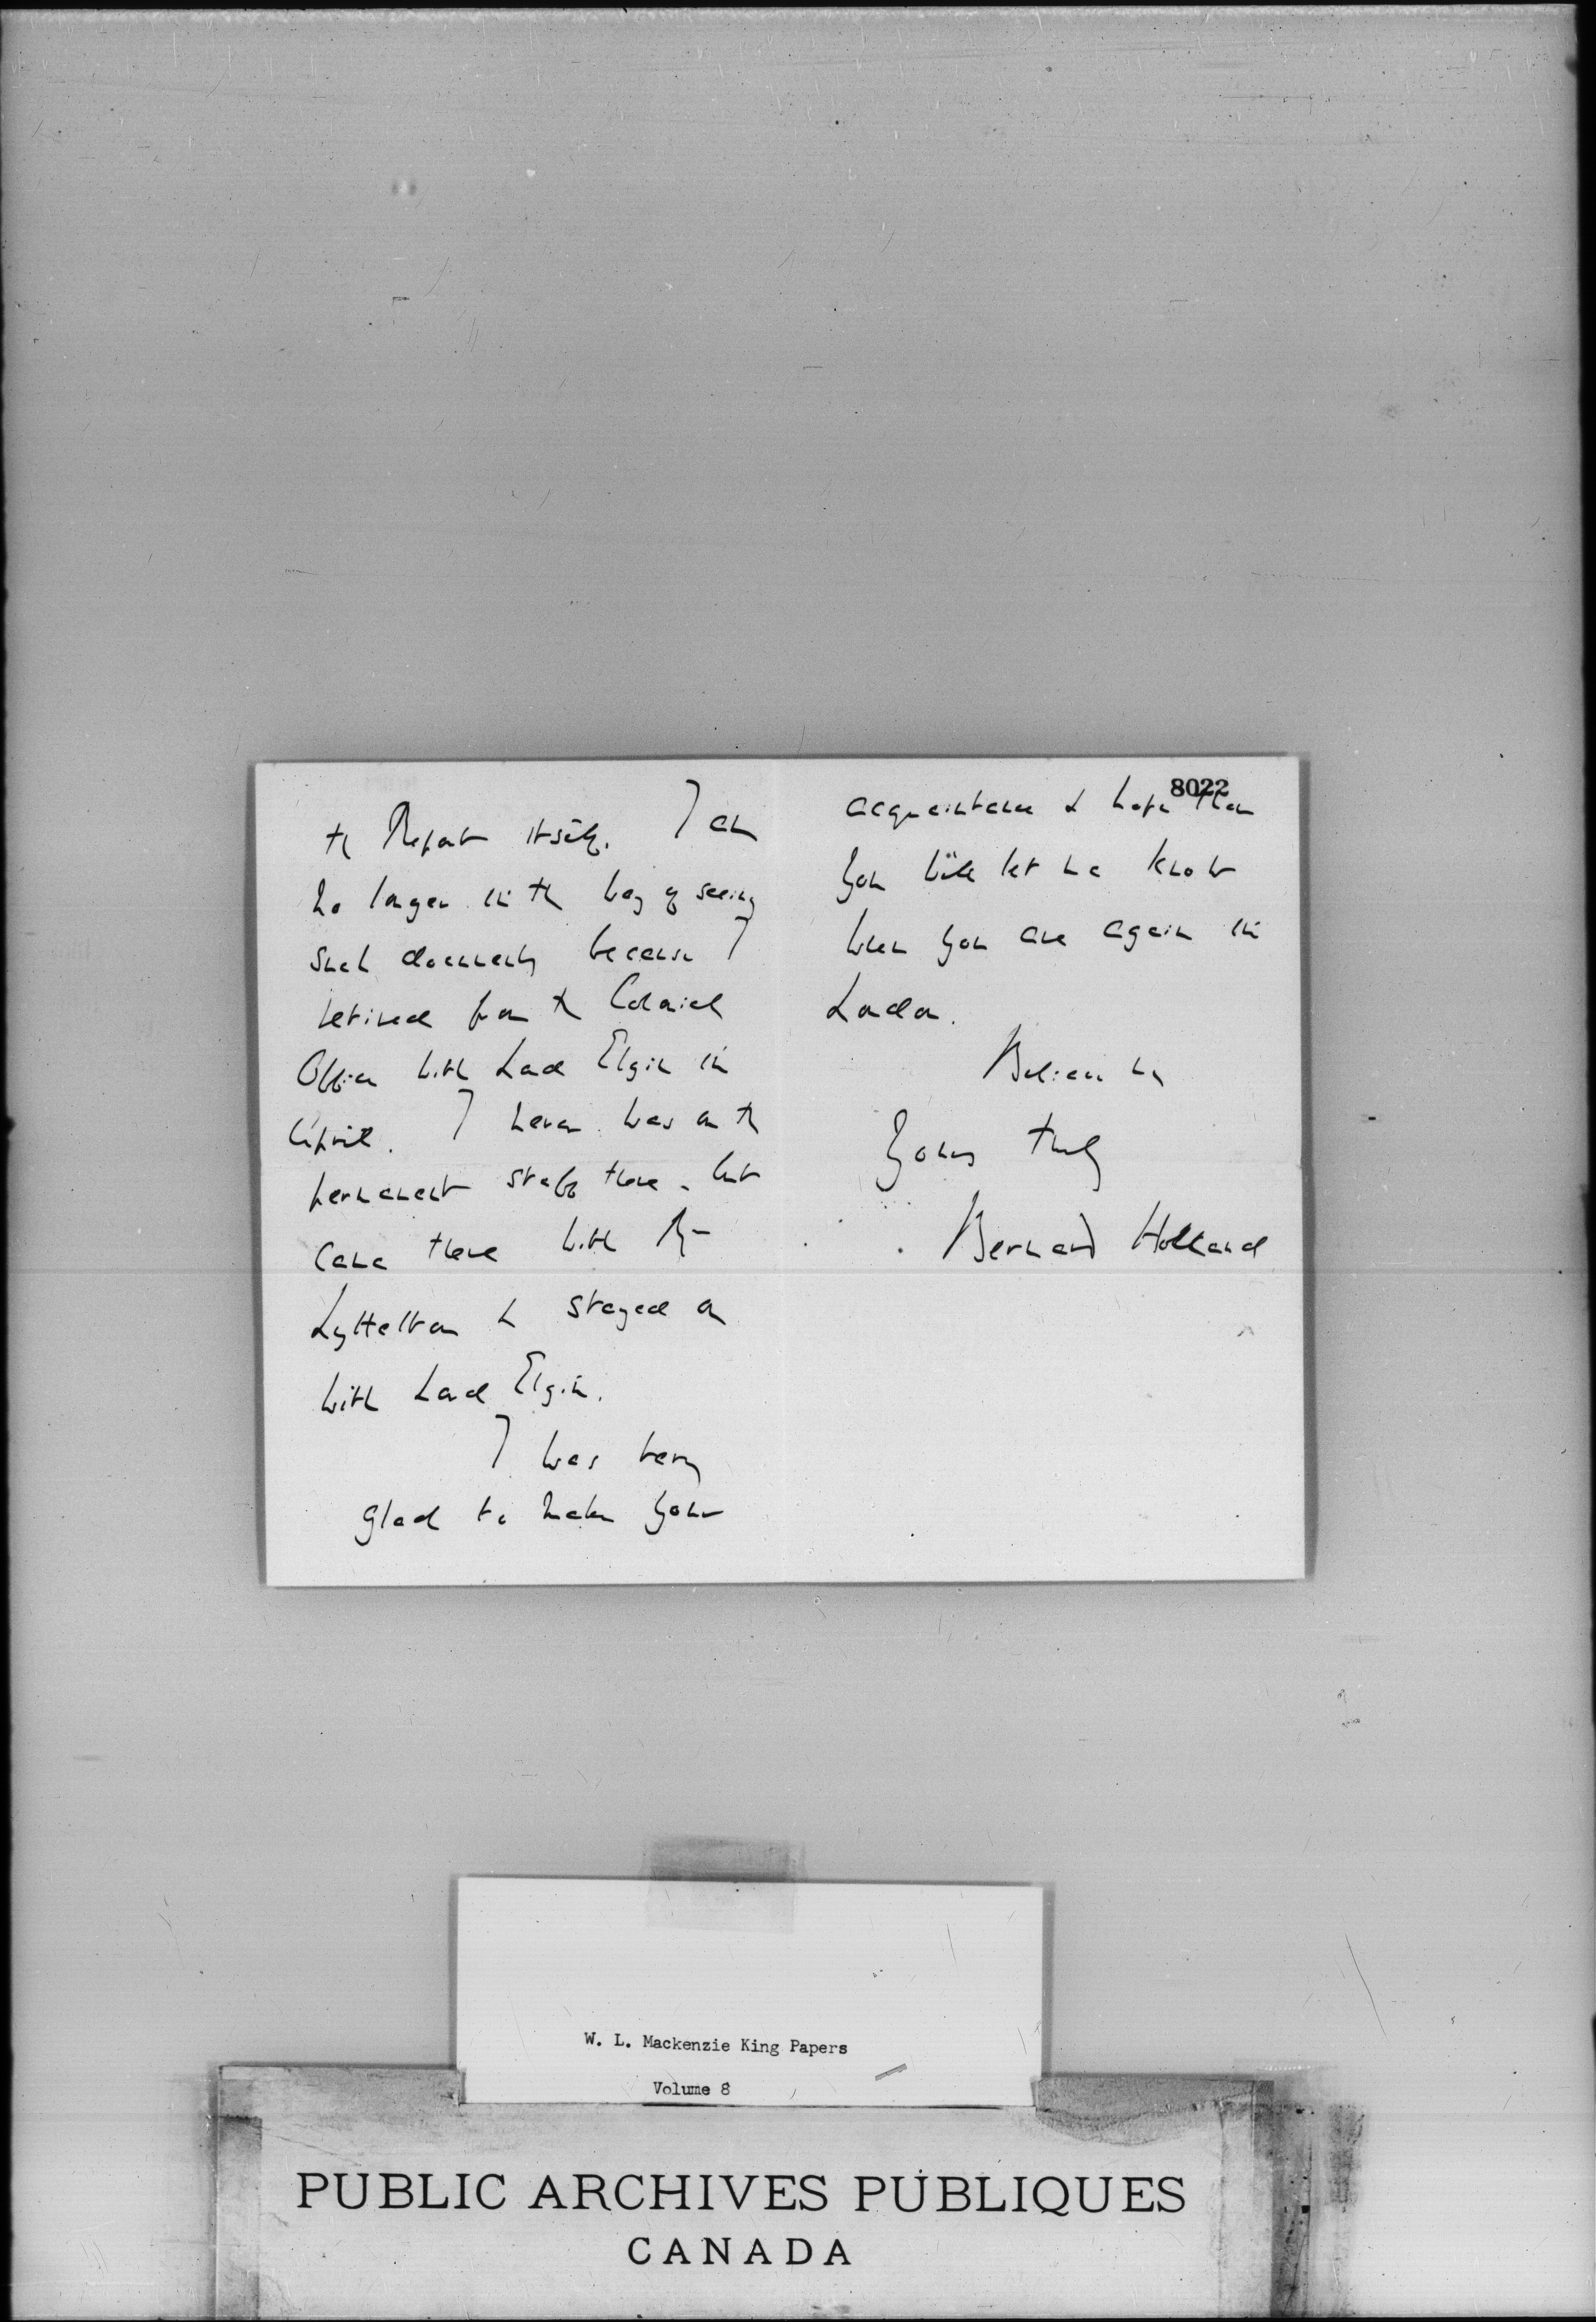 the Report itself. I am
no longer in the way of seeing
such documents because I
retired from the Colonial
Office with Lord Elgin in
April. I never was on the
permanent staff there, but
came there with Mr
Lyttelton & stayed on
with Lord Elgin.
I was very
glad to make your
8022
acquaintance & hope that
you will let me know
when you are again in
London.
Believe me
Yours truly
Bernard Holland
W. L. Mackenzie King Papers
Volume 8
PUBLIC ARCHIVES PUBLIQUES
CANADA